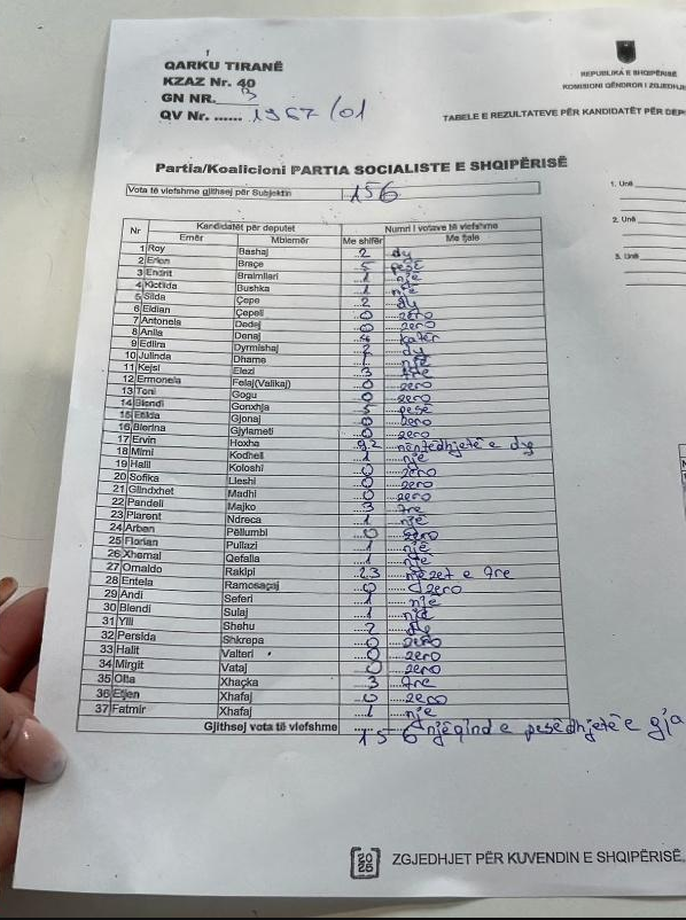 QARKU TIRANË
KZAZ Nr. 40
GN NR. 13
QV Nr. ...... 1367/01
REPUBLIKA E SHQIPËRISË
KOMISIONI QENDROR I ZGJEDHJE
TABELE E REZULTATEVE PËR KANDIDATËT PËR DEP
Partia/Koalicioni PARTIA SOCIALISTE E SHQIPËRISË
Vota të vlefshme gjithsej për Subjektin 156
1. Unë
2. Unë
3. Unë
Nr Kandidatët për deputet Numri i votave të vlefshme
Emër Mbiemër Me shifër Me fjalë
1 Roy Bashaj 2 dy
2 Erion Braçe 5 pesë
3 Endrit Braimllari 1 një
4 Klotilda Bushka 1 një
5 Silda Çepe 2 dy
6 Eldian Çepeli 0 zero
7 Antonela Dedej 0 zero
8 Anila Denaj 4 katër
9 Edlira Dyrmishaj 2 dy
10 Julinda Dhame 1 një
11 Kejsi Elezi 3 tre
12 Ermonela Felaj(Valikaj) 0 zero
13 Toni Gogu 0 zero
14 Blendi Gonxhja 5 pesë
15 Gjonaj 0 zero
16 Blerina Gjylameti 0 zero
17 Ervin Hoxha 92 nëntëdhjetë e dy
18 Mimi Kodheli 1 një
19 Halil Koloshi 0 zero
20 Sofika Lleshi 0 zero
21 Glindxhet Madhi 0 zero
22 Pandeli Majko 3 tre
23 Plarent Ndreca 1 një
24 Arben Pëllumbi 0 zero
25 Florian Pullazi 1 një
26 Xhemal Qefalia 1 një
27 Ornaldo Rakipi 23 njëzet e tre
28 Entela Ramosaçaj 0 zero
29 Andi Seferi 1 një
30 Blendi Sulaj 1 një
31 Ylli Shehu 2 dy
32 Persida Shkrepa 0 zero
33 Halit Valteri 0 zero
34 Mirgit Vataj 0 zero
35 Olta Xhaçka 3 tre
36 Etjen Xhafaj 0 zero
37 Fatmir Xhafaj 1 një
Gjithsej vota të vlefshme 156 njëqind e pesëdhjetë e gja
ZGJEDHJET PËR KUVENDIN E SHQIPËRISË,